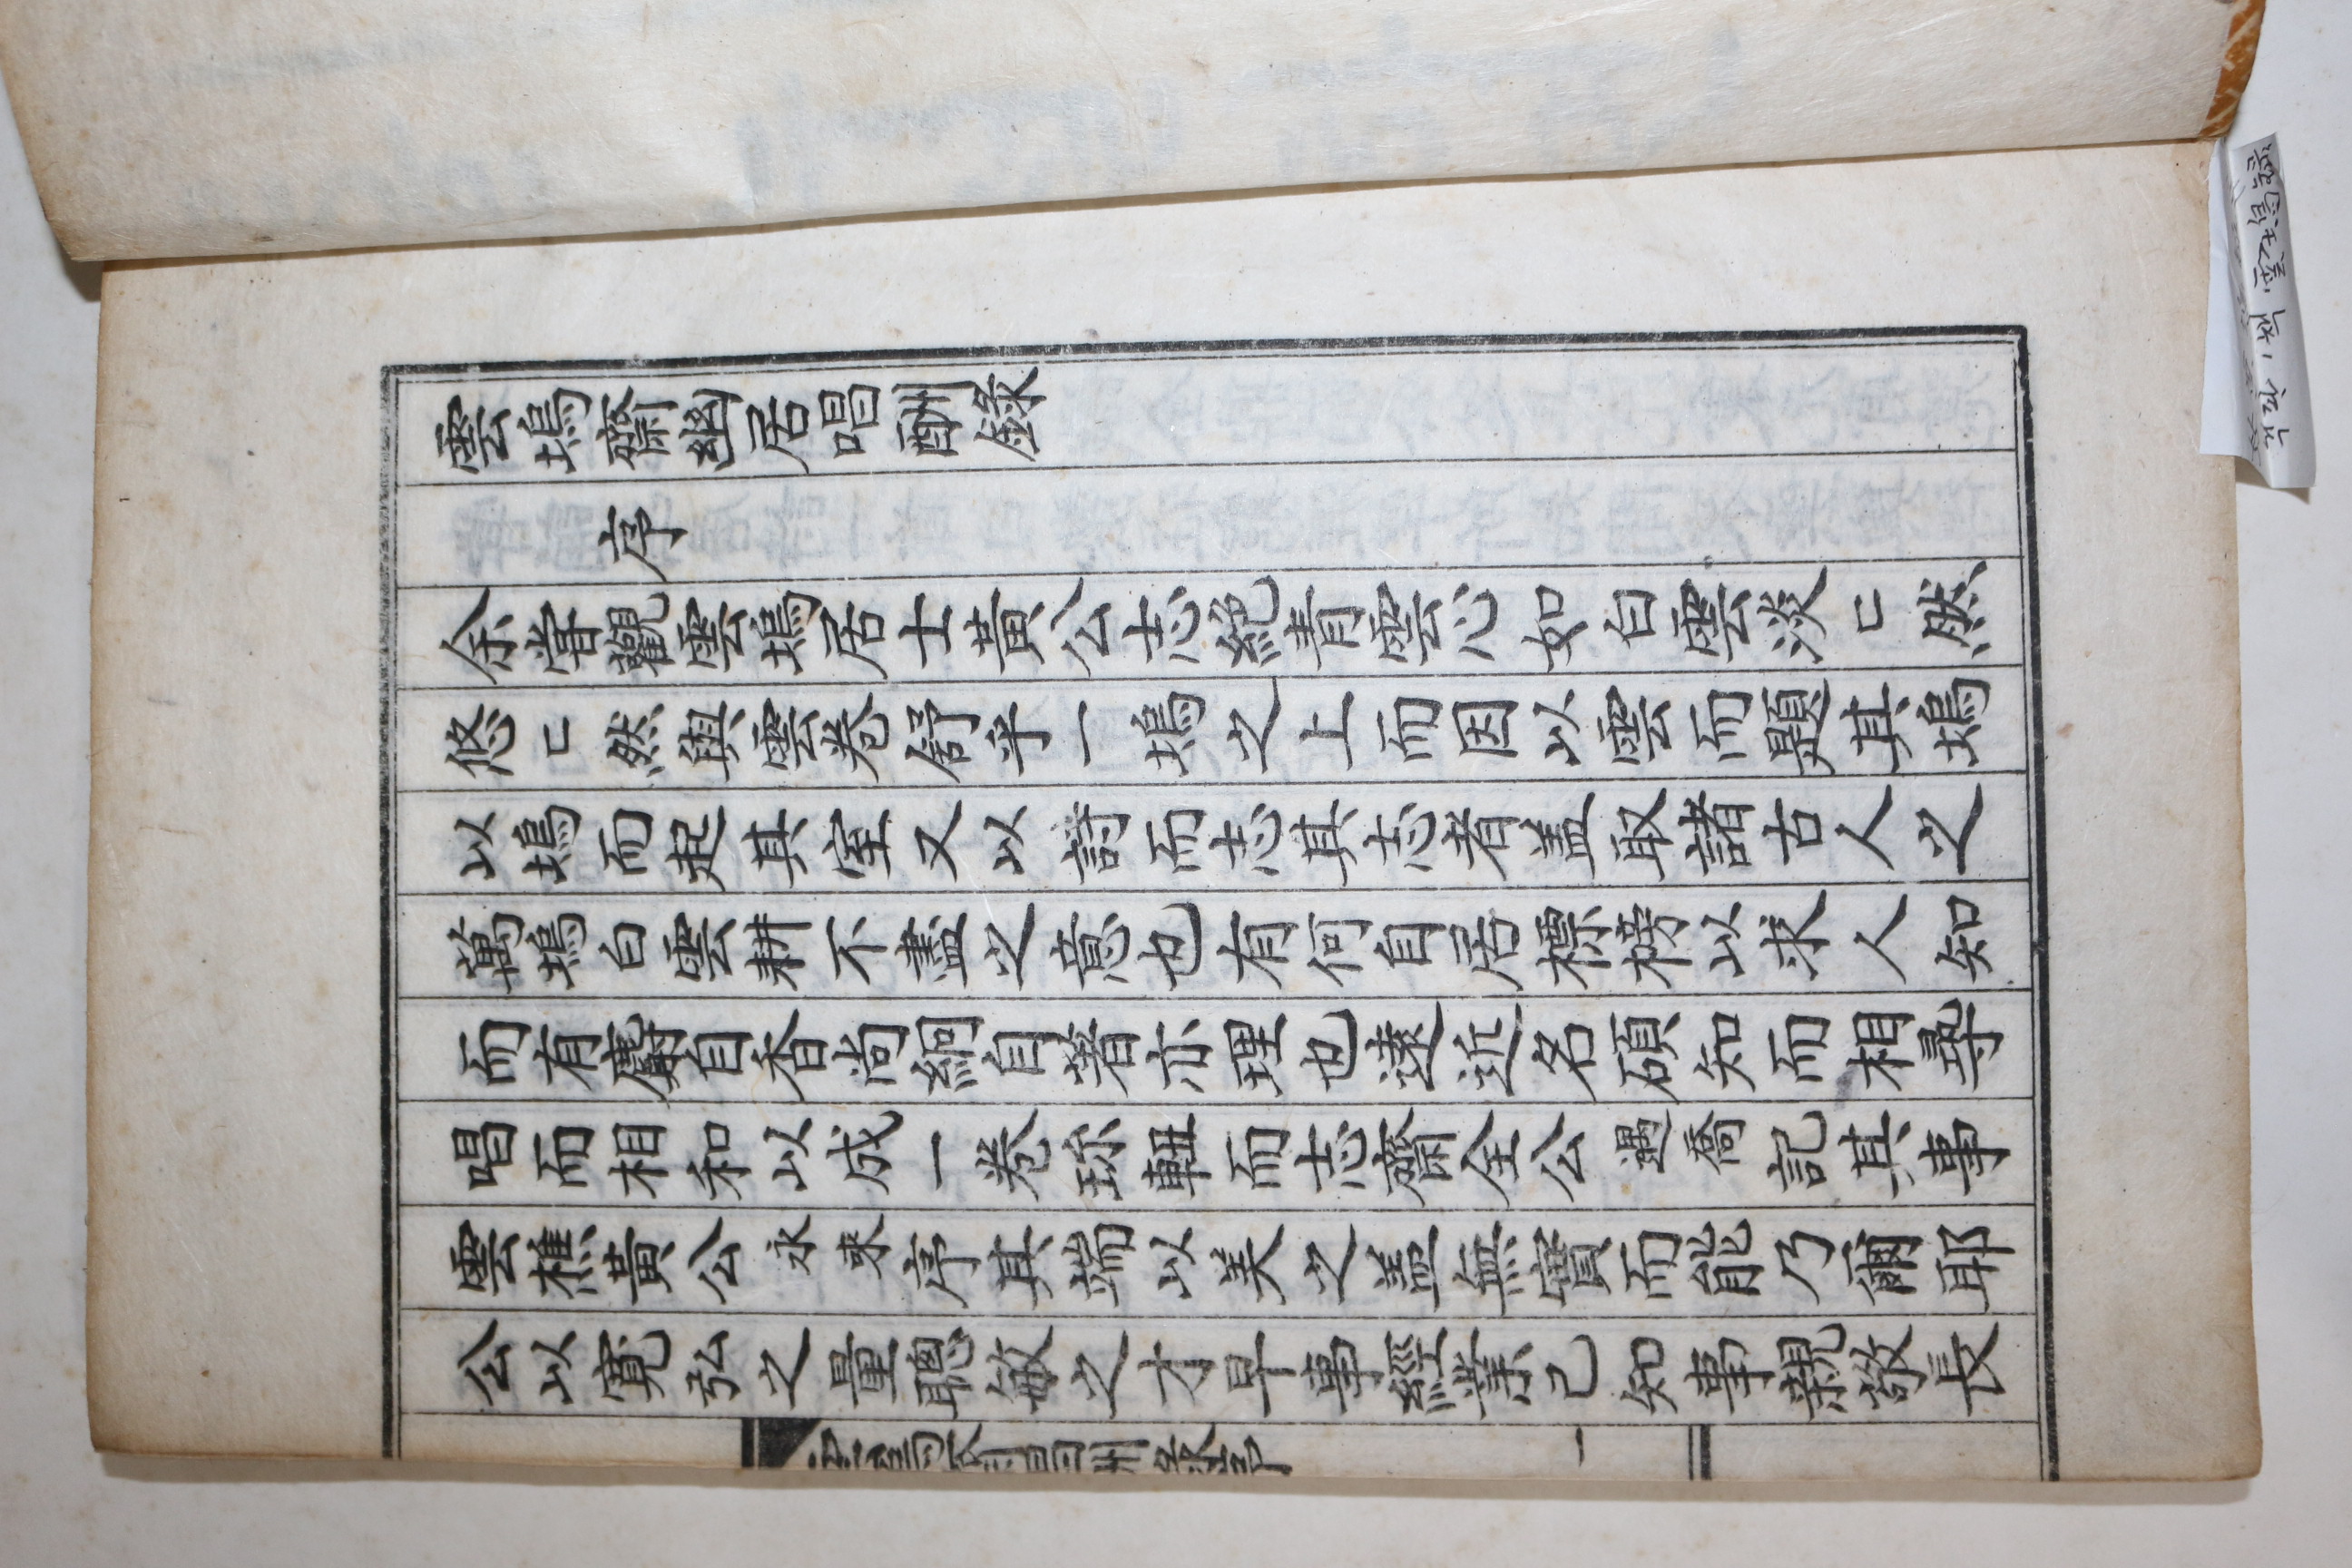 雲塢齋幽居唱酬錄
序
余嘗觀雲塢居士黃公志絶青雲心如白雲淡〻然
悠〻然與雲卷舒乎一塢之上而因以雲而題其塢
以塢而起其室又以詩而志其志者盖取諸古人之
萬塢白雲耕不盡之意也有何自居標榜以求人知
而有麝自香尚絅自著亦理也遠近名碩知而相尋
唱而相和以成一卷珎軸而志齋全公遇喬記其事
雲樵黃公永來序其端以美之盖無實而能乃爾耶
公以寬弘之量聰敏之才早事經業已知事親敬長
雲塢齋唱酬錄序
一